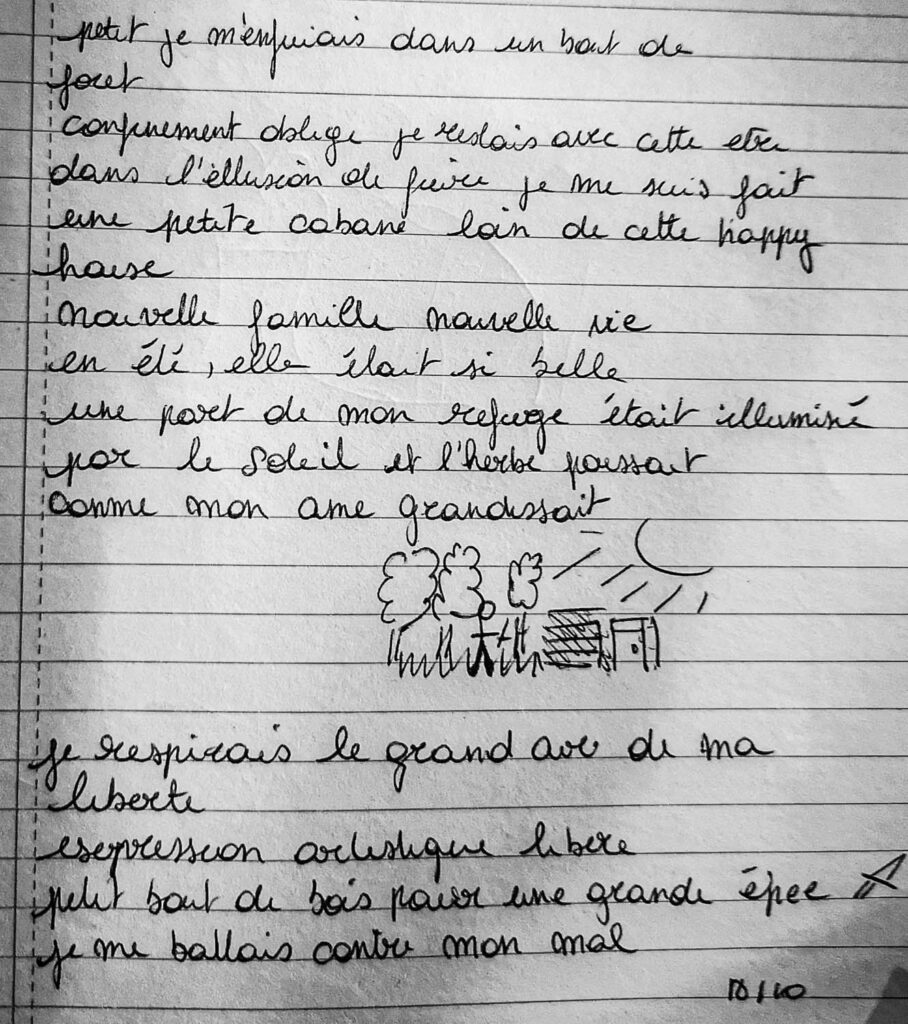 petit je m'enfuiais dans un bout de
foret
confinement oblige je restais avec cette etre
dans l'éllusion de fuire je me suis fait
une petite cabane loin de cette happy
house
nouvelle famille nouvelle vie
en été, elle était si belle
une part de mon refuge était illuminé
par le soleil et l'herbe poussait
comme mon ame grandissait
je respirais le grand air de ma
liberte
expression artistique libere
petit bout de bois pour une grande épee
je me battais contre mon mal